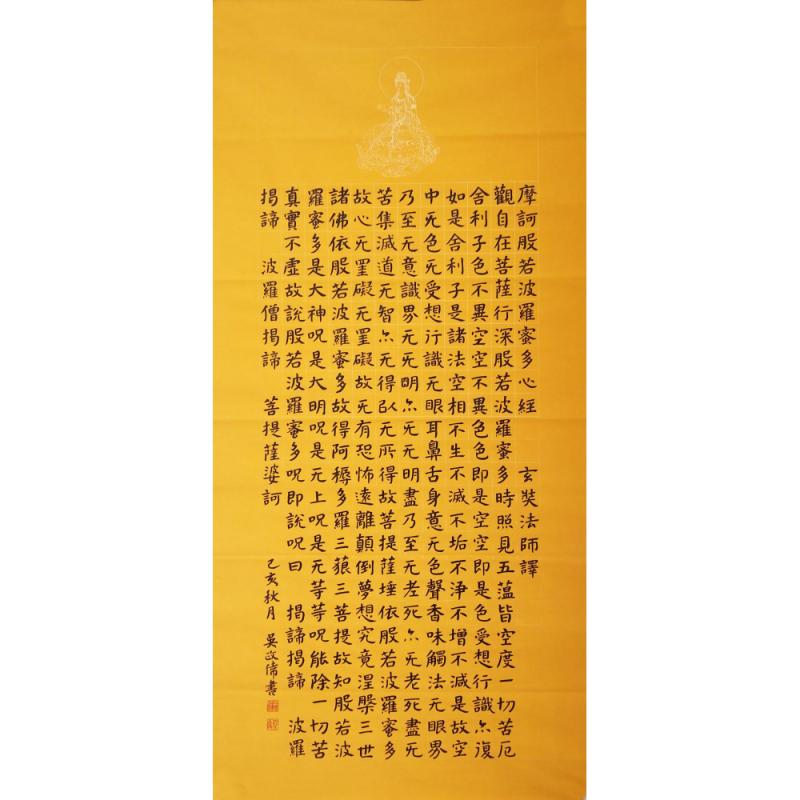 摩訶般若波羅蜜多心經 玄奘法師譯
觀自在菩薩行深般若波羅蜜多時照見五蕰皆空度一切苦厄
舍利子色不異空空不異色色即是空空即是色受想行識亦復
如是舍利子是諸法空相不生不滅不垢不淨不增不減是故空
中无色无受想行識无眼耳鼻舌身意无色聲香味觸法无眼界
乃至无意識界无无明亦无无明盡乃至无老死亦无老死盡无
苦集滅道无智亦无得以无所得故菩提薩埵依般若波羅蜜多
故心无罣礙无罣礙故无有恐怖遠離顛倒夢想究竟涅槃三世
諸佛依般若波羅蜜多故得阿耨多羅三藐三菩提故知般若波
羅蜜多是大神呪是大明呪是无上呪是无等等呪能除一切苦
真實不虛故說般若波羅蜜多呪即說呪曰 揭諦揭諦 波羅
揭諦 波羅僧揭諦 菩提薩婆訶
己亥秋月 吳書